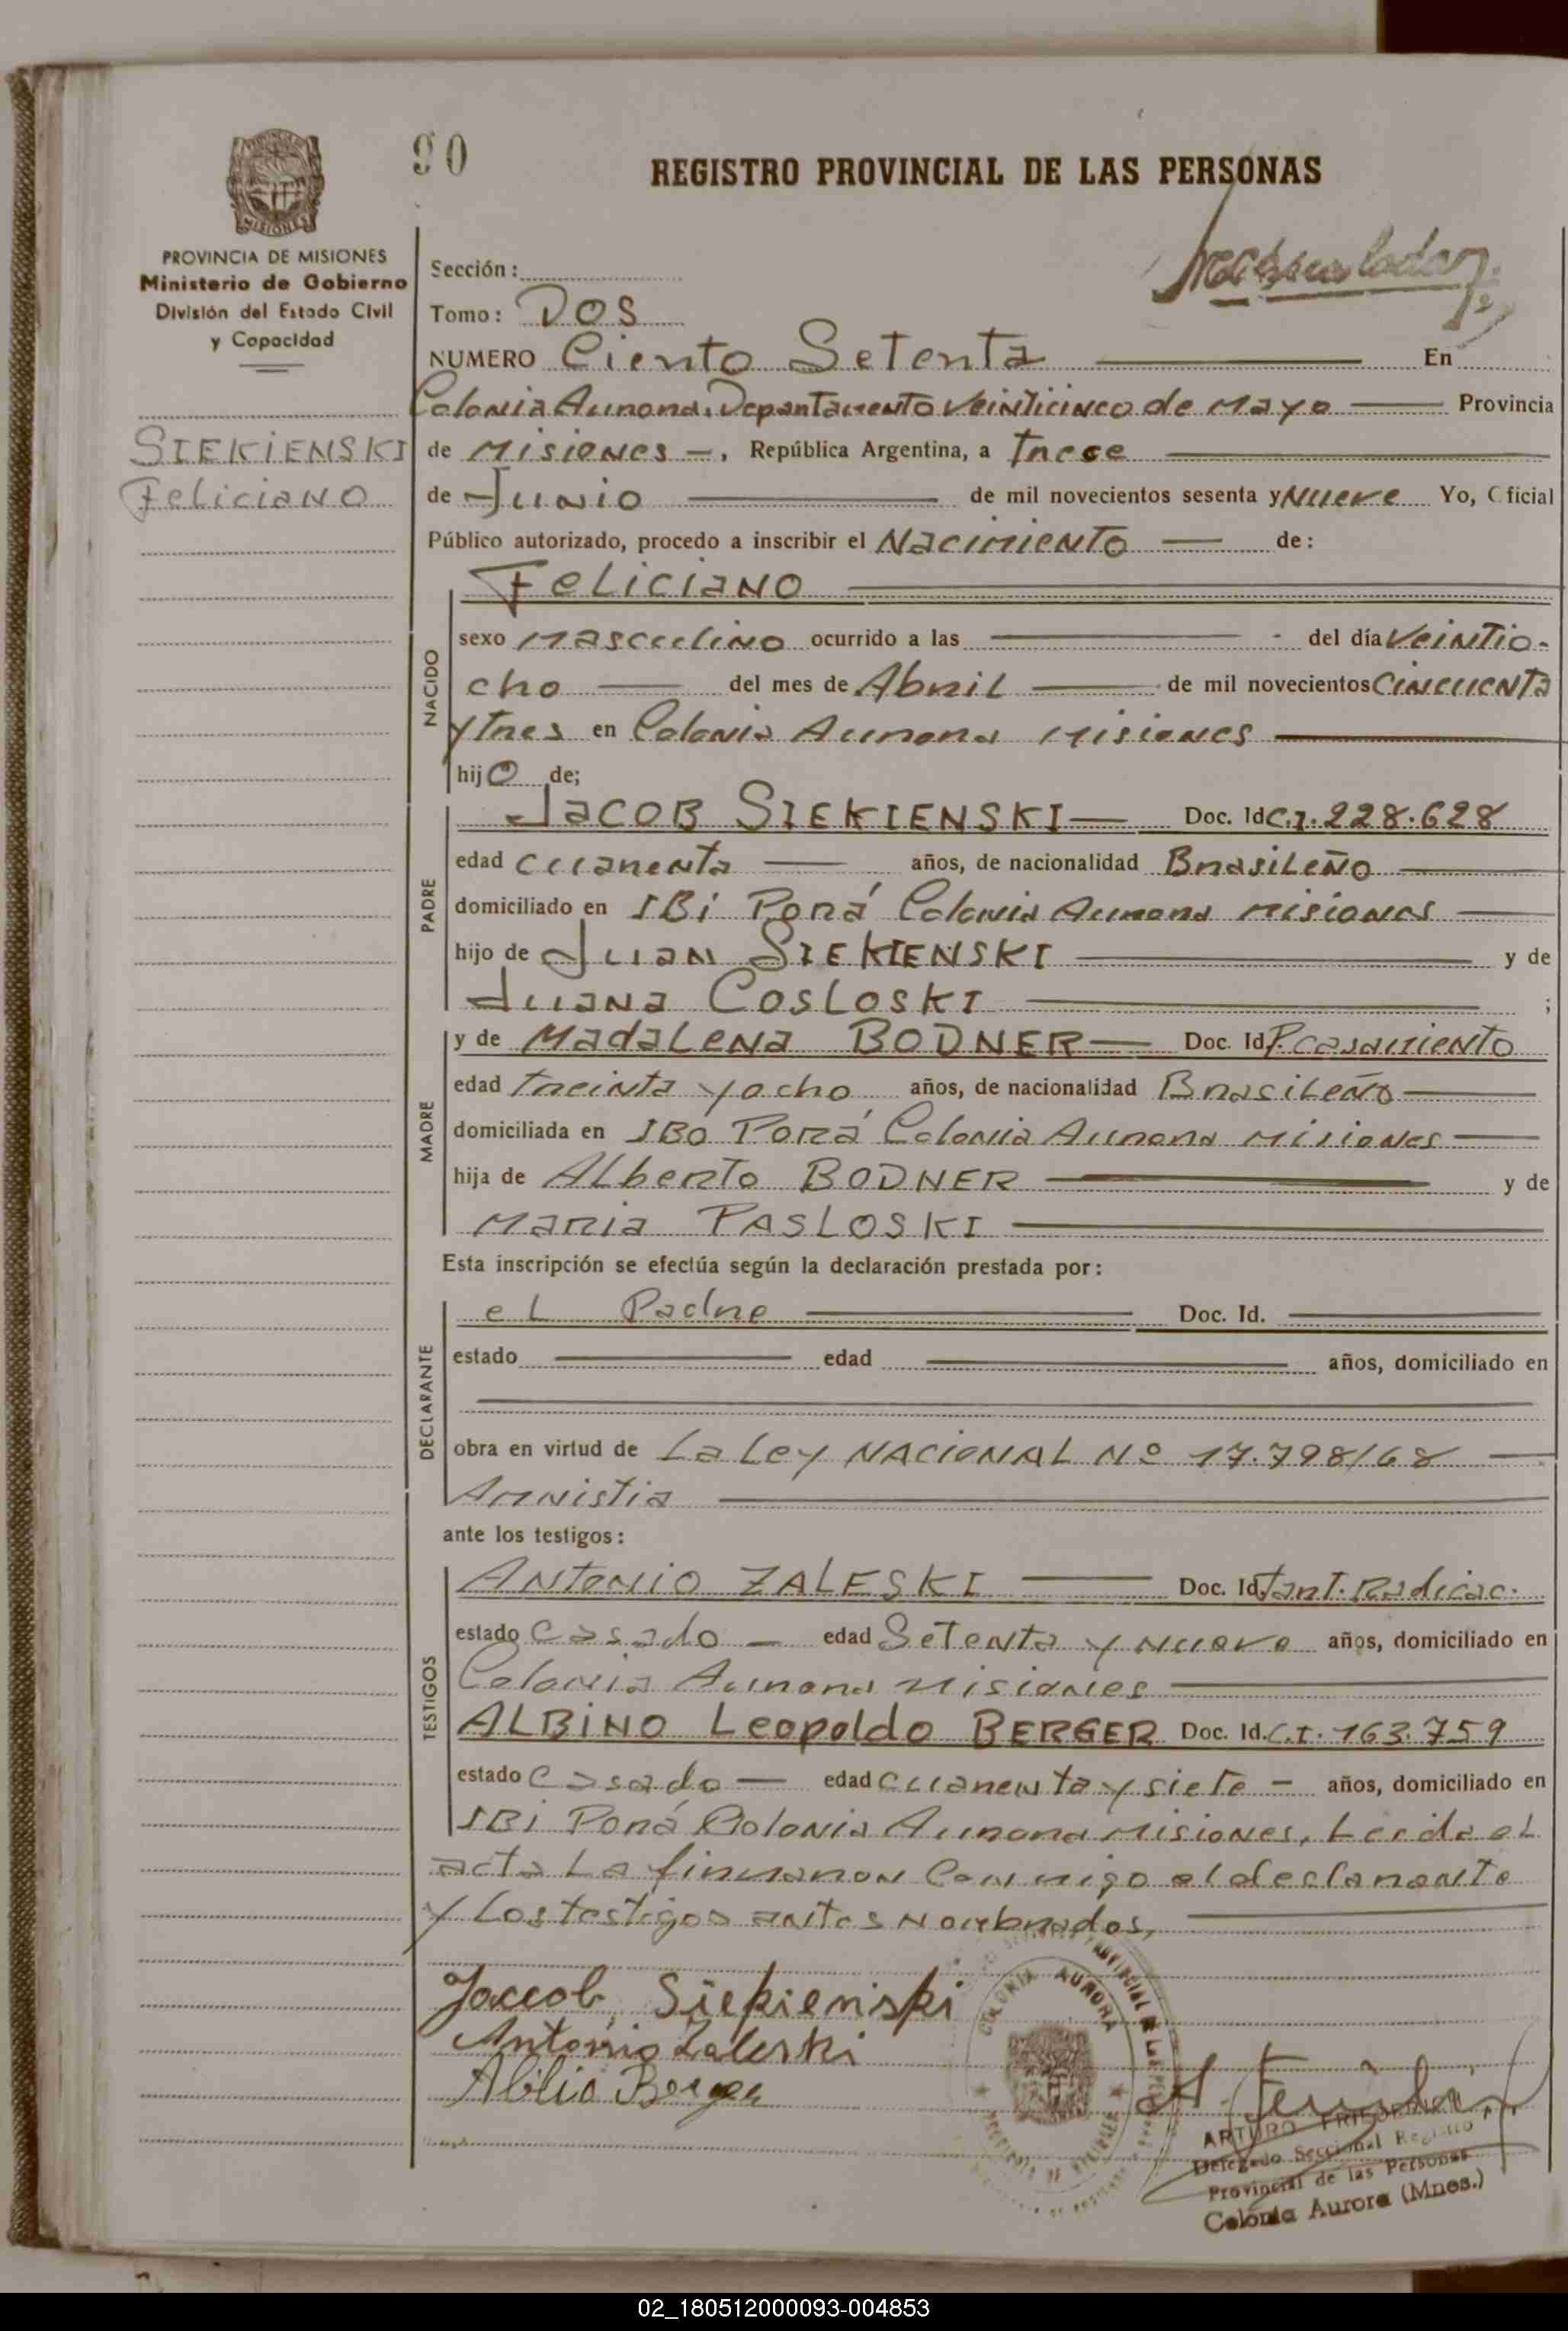 90
REGISTRO PROVINCIAL DE LAS PERSONAS
PROVINCIA DE MISIONES
Ministerio de Gobierno
División del Estado Civil
y Capacidad
MISIONES
SIEKIENSKI
Feliciano
Sección:
Tomo: DOS
NUMERO Ciento Setenta En
Colonia Aurora, Departamento Veinticinco de Mayo Provincia
de Misiones -, República Argentina, a Trece
de Junio de mil novecientos sesenta y Nueve Yo, Oficial
Público autorizado, procedo a inscribir el Nacimiento de:
Feliciano
NACIDO
sexo Masculino ocurrido a las del día Veintio-
cho del mes de Abril de mil novecientos Cincuenta
y tres en Colonia Aurora Misiones
hijo de;
PADRE
Jacob SIEKIENSKI Doc. Id C.I. 228.628
edad cuarenta años, de nacionalidad Brasileño
domiciliado en IBi Porá Colonia Aurora Misiones
hijo de Juan SIEKIENSKI y de
Juana COSLOSKI ;
MADRE
y de MadaLena BODNER Doc. Id P. casamiento
edad treinta y ocho años, de nacionalidad Brasileño
domiciliada en IBO Porá Colonia Aurora Misiones
hija de ALberto BODNER y de
Maria PASLOSKI
Esta inscripción se efectúa según la declaración prestada por:
DECLARANTE
eL Padre Doc. Id.
estado edad años, domiciliado en
obra en virtud de La Ley NACIONAL Nº 17.798/68
Amnistia
ante los testigos:
TESTIGOS
Antonio ZALESKI Doc. Id. Tarj. Radicac.
estado Casado edad Setenta y nueve años, domiciliado en
Colonia Aurora Misiones
ALBINO Leopoldo BERGER Doc. Id. C.I. 163.759
estado Casado edad cuarenta y siete - años, domiciliado en
IBi Porá Colonia Aurora Misiones, Leida el
acta La firmaron conmigo el declarante
y Los testigos antes nombrados,
Jaccob Siekienski
Antonio Zaleski
Berger
COLONIA AURORA
ARTURO FRIEDERICH
Delegado Seccional Registro
Provincial de las Personas
Colonia Aurora (Mnes.)
02_180512000093-004853